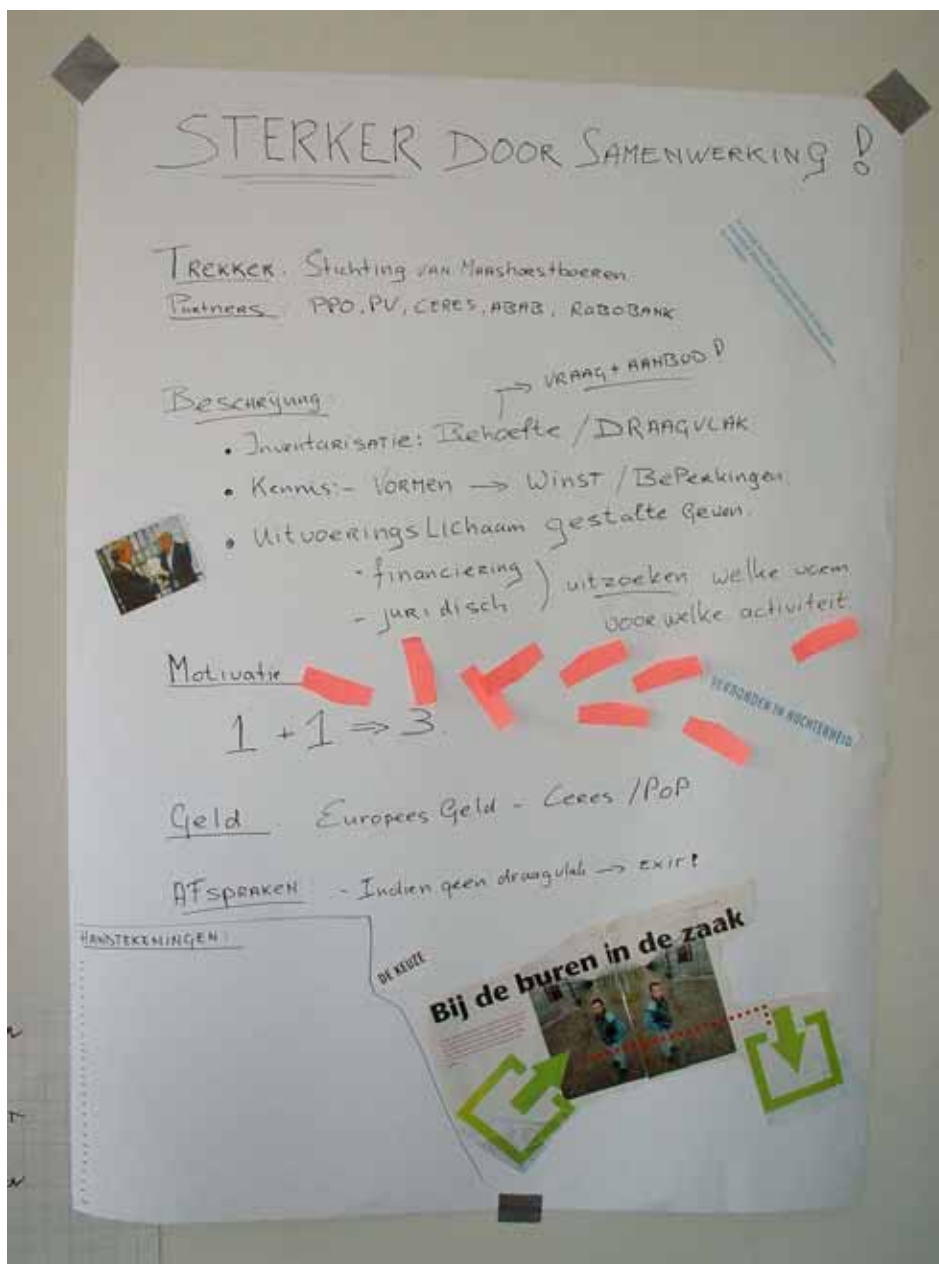 STERKER DOOR SAMENWERKING!
TREKKER: Stichting VAN Maashorstboeren
Partners: PPO, PV, CERES, ABAB, RABOBANK
→ VRAAG + AANBOD!
Beschrijving:
• Inventarisatie: Behoefte / DRAAGVLAK
• Kennis: - VORMEN → Winst / Beperkingen.
• Uitvoerings Lichaam gestalte Geven.
- financiering ) uitzoeken welke vorm
- juridisch ) voor welke activiteit
Motivatie
VERBONDEN IN NUCHTERHEID
1 + 1 ⇒ 3.
Geld Europees Geld - Ceres / PoP
AFSPRAKEN: - Indien geen draagvlak → EXIT!
HANDTEKENINGEN:
DE KEUZE
Bij de buren in de zaak